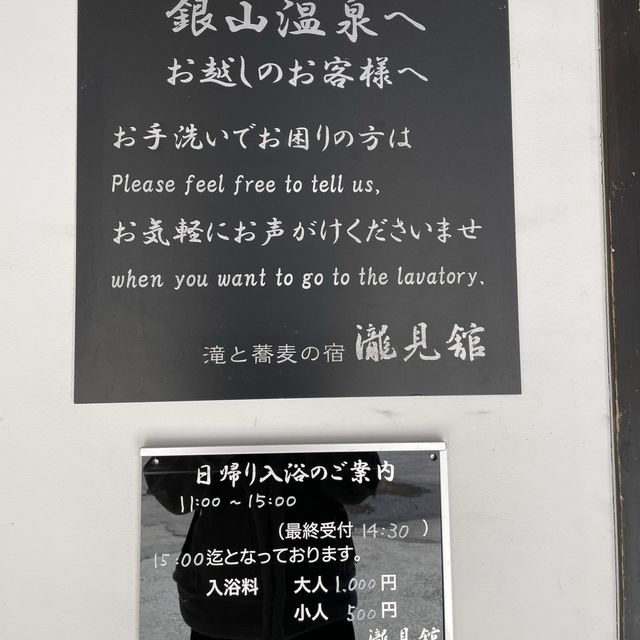 銀山温泉へ
お越しのお客様へ
お手洗いでお困りの方は
Please feel free to tell us,
お気軽にお声がけくださいませ
when you want to go to the lavatory.
滝と蕎麦の宿 瀧見舘
日帰り入浴のご案内
11:00 ~ 15:00
(最終受付 14:30 )
15:00迄となっております。
入浴料 大人 1.000円
小人 500円
瀧見舘